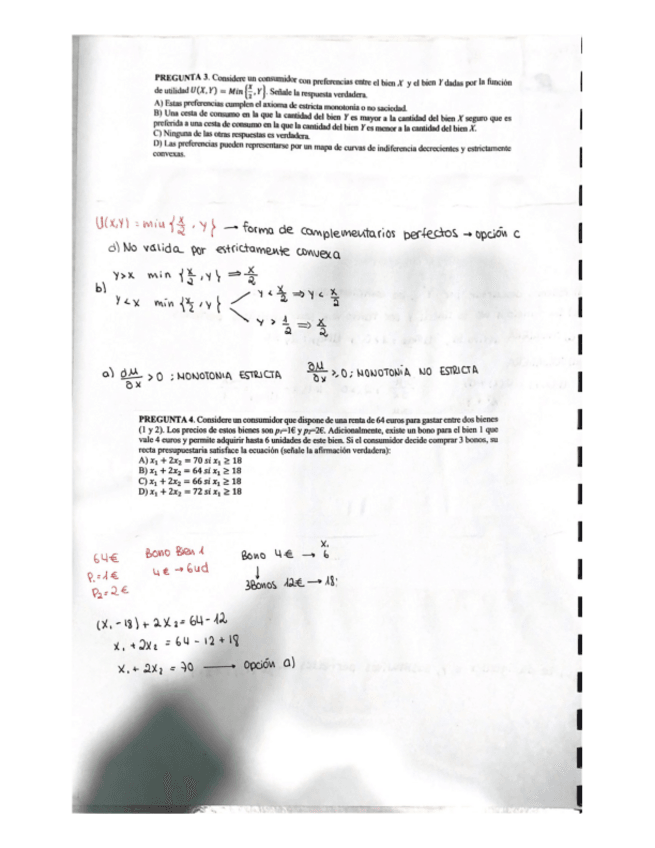 PREGUNTA 3. Considere un consumidor con preferencias entre el bien X y el bien Y dadas por la función
de utilidad U(X,Y) = Min{x/2, Y}. Señale la respuesta verdadera.
A) Estas preferencias cumplen el axioma de estricta monotonía o no saciedad.
B) Una cesta de consumo en la que la cantidad del bien Y es mayor a la cantidad del bien X seguro que es
preferida a una cesta de consumo en la que la cantidad del bien Y es menor a la cantidad del bien X.
C) Ninguna de las otras respuestas es verdadera.
D) Las preferencias pueden representarse por un mapa de curvas de indiferencia decrecientes y estrictamente
convexas.
U(x,y) = min {x/2, y} → forma de complementarios perfectos → opción c
d) No valida por estrictamente convexa
b)
y>x min {x/2, y} ⇒ x/2
y<x min {x/2, y}
y < x/2 ⇒ y < x/2
y > 1/2 ⇒ x/2
a) ∂M/∂x > 0 ; MONOTONIA ESTRICTA ∂M/∂x ≥ 0 ; MONOTONIA NO ESTRICTA
PREGUNTA 4. Considere un consumidor que dispone de una renta de 64 euros para gastar entre dos bienes
(1 y 2). Los precios de estos bienes son p₁=1€ y p₂=2€. Adicionalmente, existe un bono para el bien 1 que
vale 4 euros y permite adquirir hasta 6 unidades de este bien. Si el consumidor decide comprar 3 bonos, su
recta presupuestaria satisface la ecuación (señale la afirmación verdadera):
A) x₁ + 2x₂ = 70 si x₁ ≥ 18
B) x₁ + 2x₂ = 64 si x₁ ≥ 18
C) x₁ + 2x₂ = 66 si x₁ ≥ 18
D) x₁ + 2x₂ = 72 si x₁ ≥ 18
64€
P₁=1€
P₂=2€
Bono Bien 1
4€ → 6ud
x₁
Bono 4€ → 6
↓
3Bonos 12€ → 18
(x₁ - 18) + 2x₂ = 64 - 12
x₁ + 2x₂ = 64 - 12 + 18
x₁ + 2x₂ = 70 → opción a)